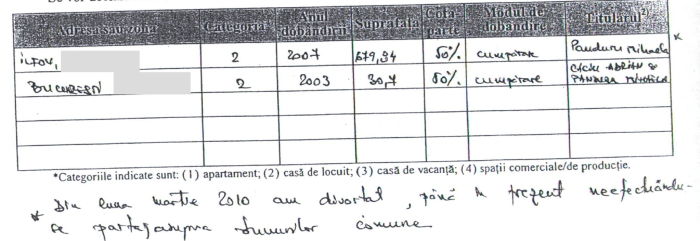 Adresa sau zona Categoria* Anul dobândirii Suprafața Cota-parte Modul de dobândire Titularul 2)
ILFOV, 2 2007 679,34 50% cumpărare Panduru Mihaela
BUCUREȘTI 2 2003 30,7 50% cumpărare ADRIAN &
*Categoriile indicate sunt: (1) apartament; (2) casă de locuit; (3) casă de vacanță; (4) spații comerciale/de producție.
* Din luna martie 2010 am divorțat, până în prezent neefectuându-
se partaj asupra bunurilor comune